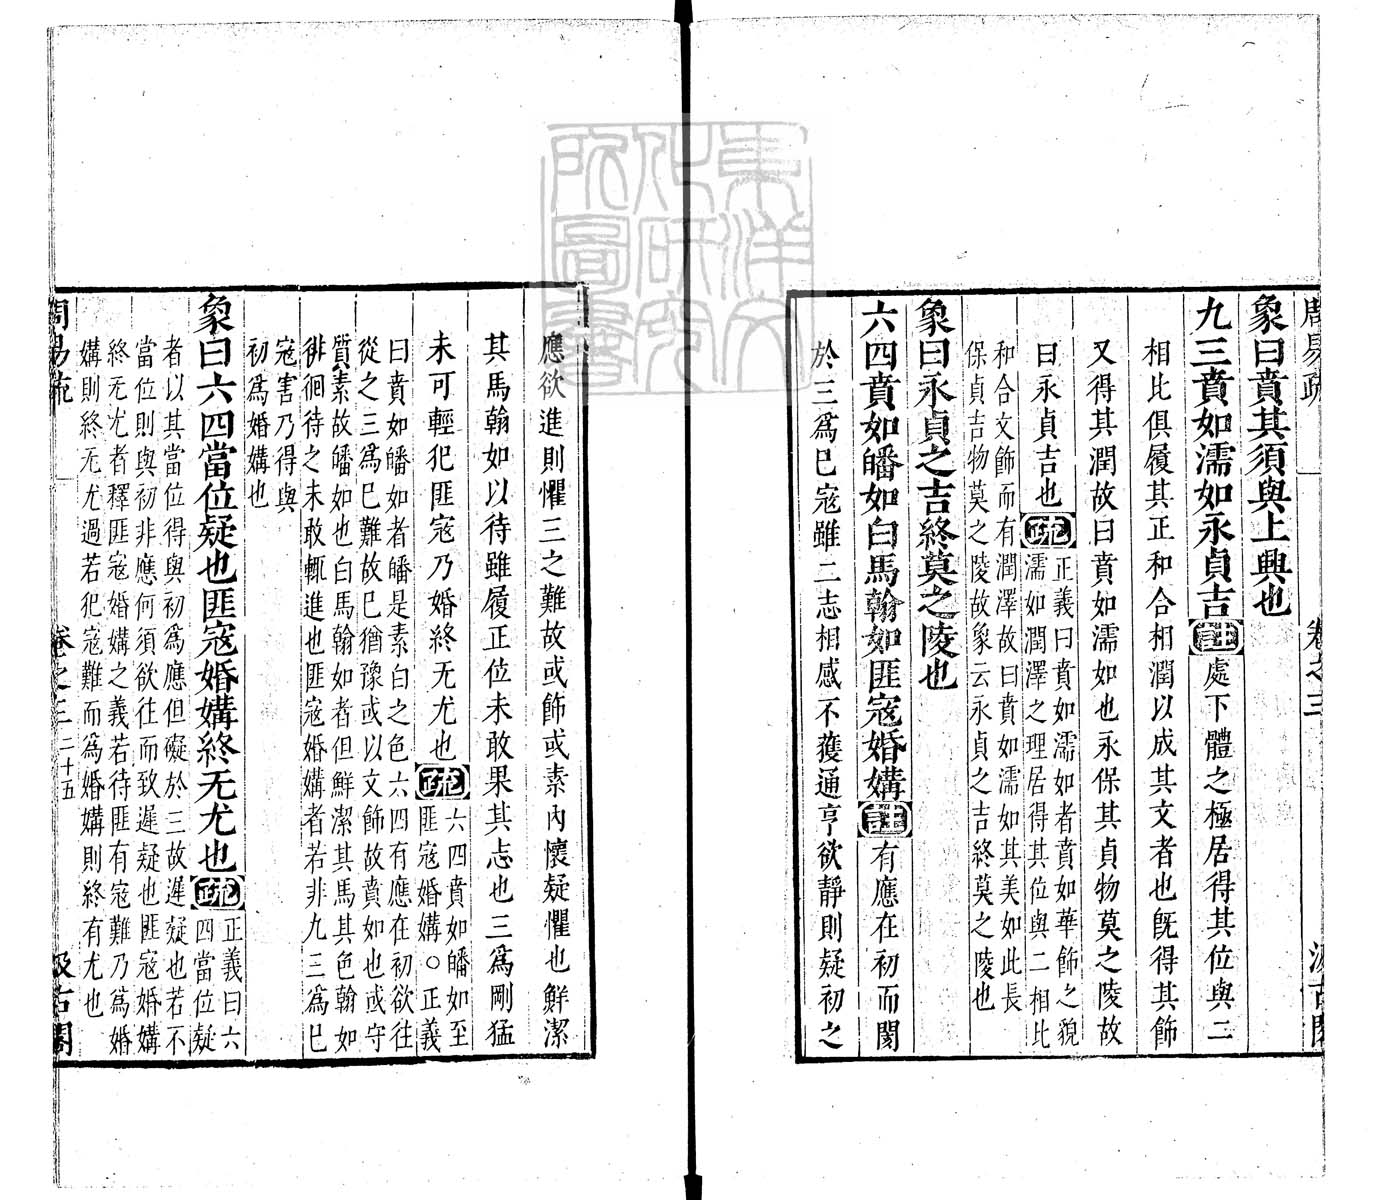 周易疏 卷之三 汲古閣
象曰賁其須與上興也
九三賁如濡如永貞吉註處下體之極居得其位與二
相比俱履其正和合相潤以成其文者也旣得其飾
又得其潤故曰賁如濡如也永保其貞物莫之陵故
曰永貞吉也疏正義曰賁如濡如者賁如華飾之貌
濡如潤澤之理居得其位與二相比
和合文飾而有潤澤故曰賁如濡如其美如此長
保貞吉物莫之陵故象云永貞之吉終莫之陵也
象曰永貞之吉終莫之陵也
六四賁如皤如白馬翰如匪寇婚媾註有應在初而閡
於三爲已寇雖二志相感不獲通亨欲靜則疑初之
應欲進則懼三之難故或飾或素內懷疑懼也鮮潔
其馬翰如以待雖履正位未敢果其志也三爲剛猛
未可輕犯匪寇乃婚終无尤也疏六四賁如皤如至
匪寇婚媾○正義
曰賁如皤如者皤是素白之色六四有應在初欲往
從之三爲已難故已猶豫或以文飾故賁如也或守
質素故皤如也白馬翰如者但鮮潔其馬其色翰如
徘徊待之未敢輒進也匪寇婚媾者若非九三爲已
寇害乃得與
初爲婚媾也
象曰六四當位疑也匪寇婚媾終无尤也疏正義曰六
四當位疑
者以其當位得與初爲應但礙於三故遲疑也若不
當位則與初非應何須欲往而致遲疑也匪寇婚媾
終无尤者釋匪寇婚媾之義若待匪有寇難乃爲婚
媾則終无尤過若犯寇難而爲婚媾則終有尤也
周易疏 卷之三 二十五 汲古閣
東洋文
化研究
所圖書